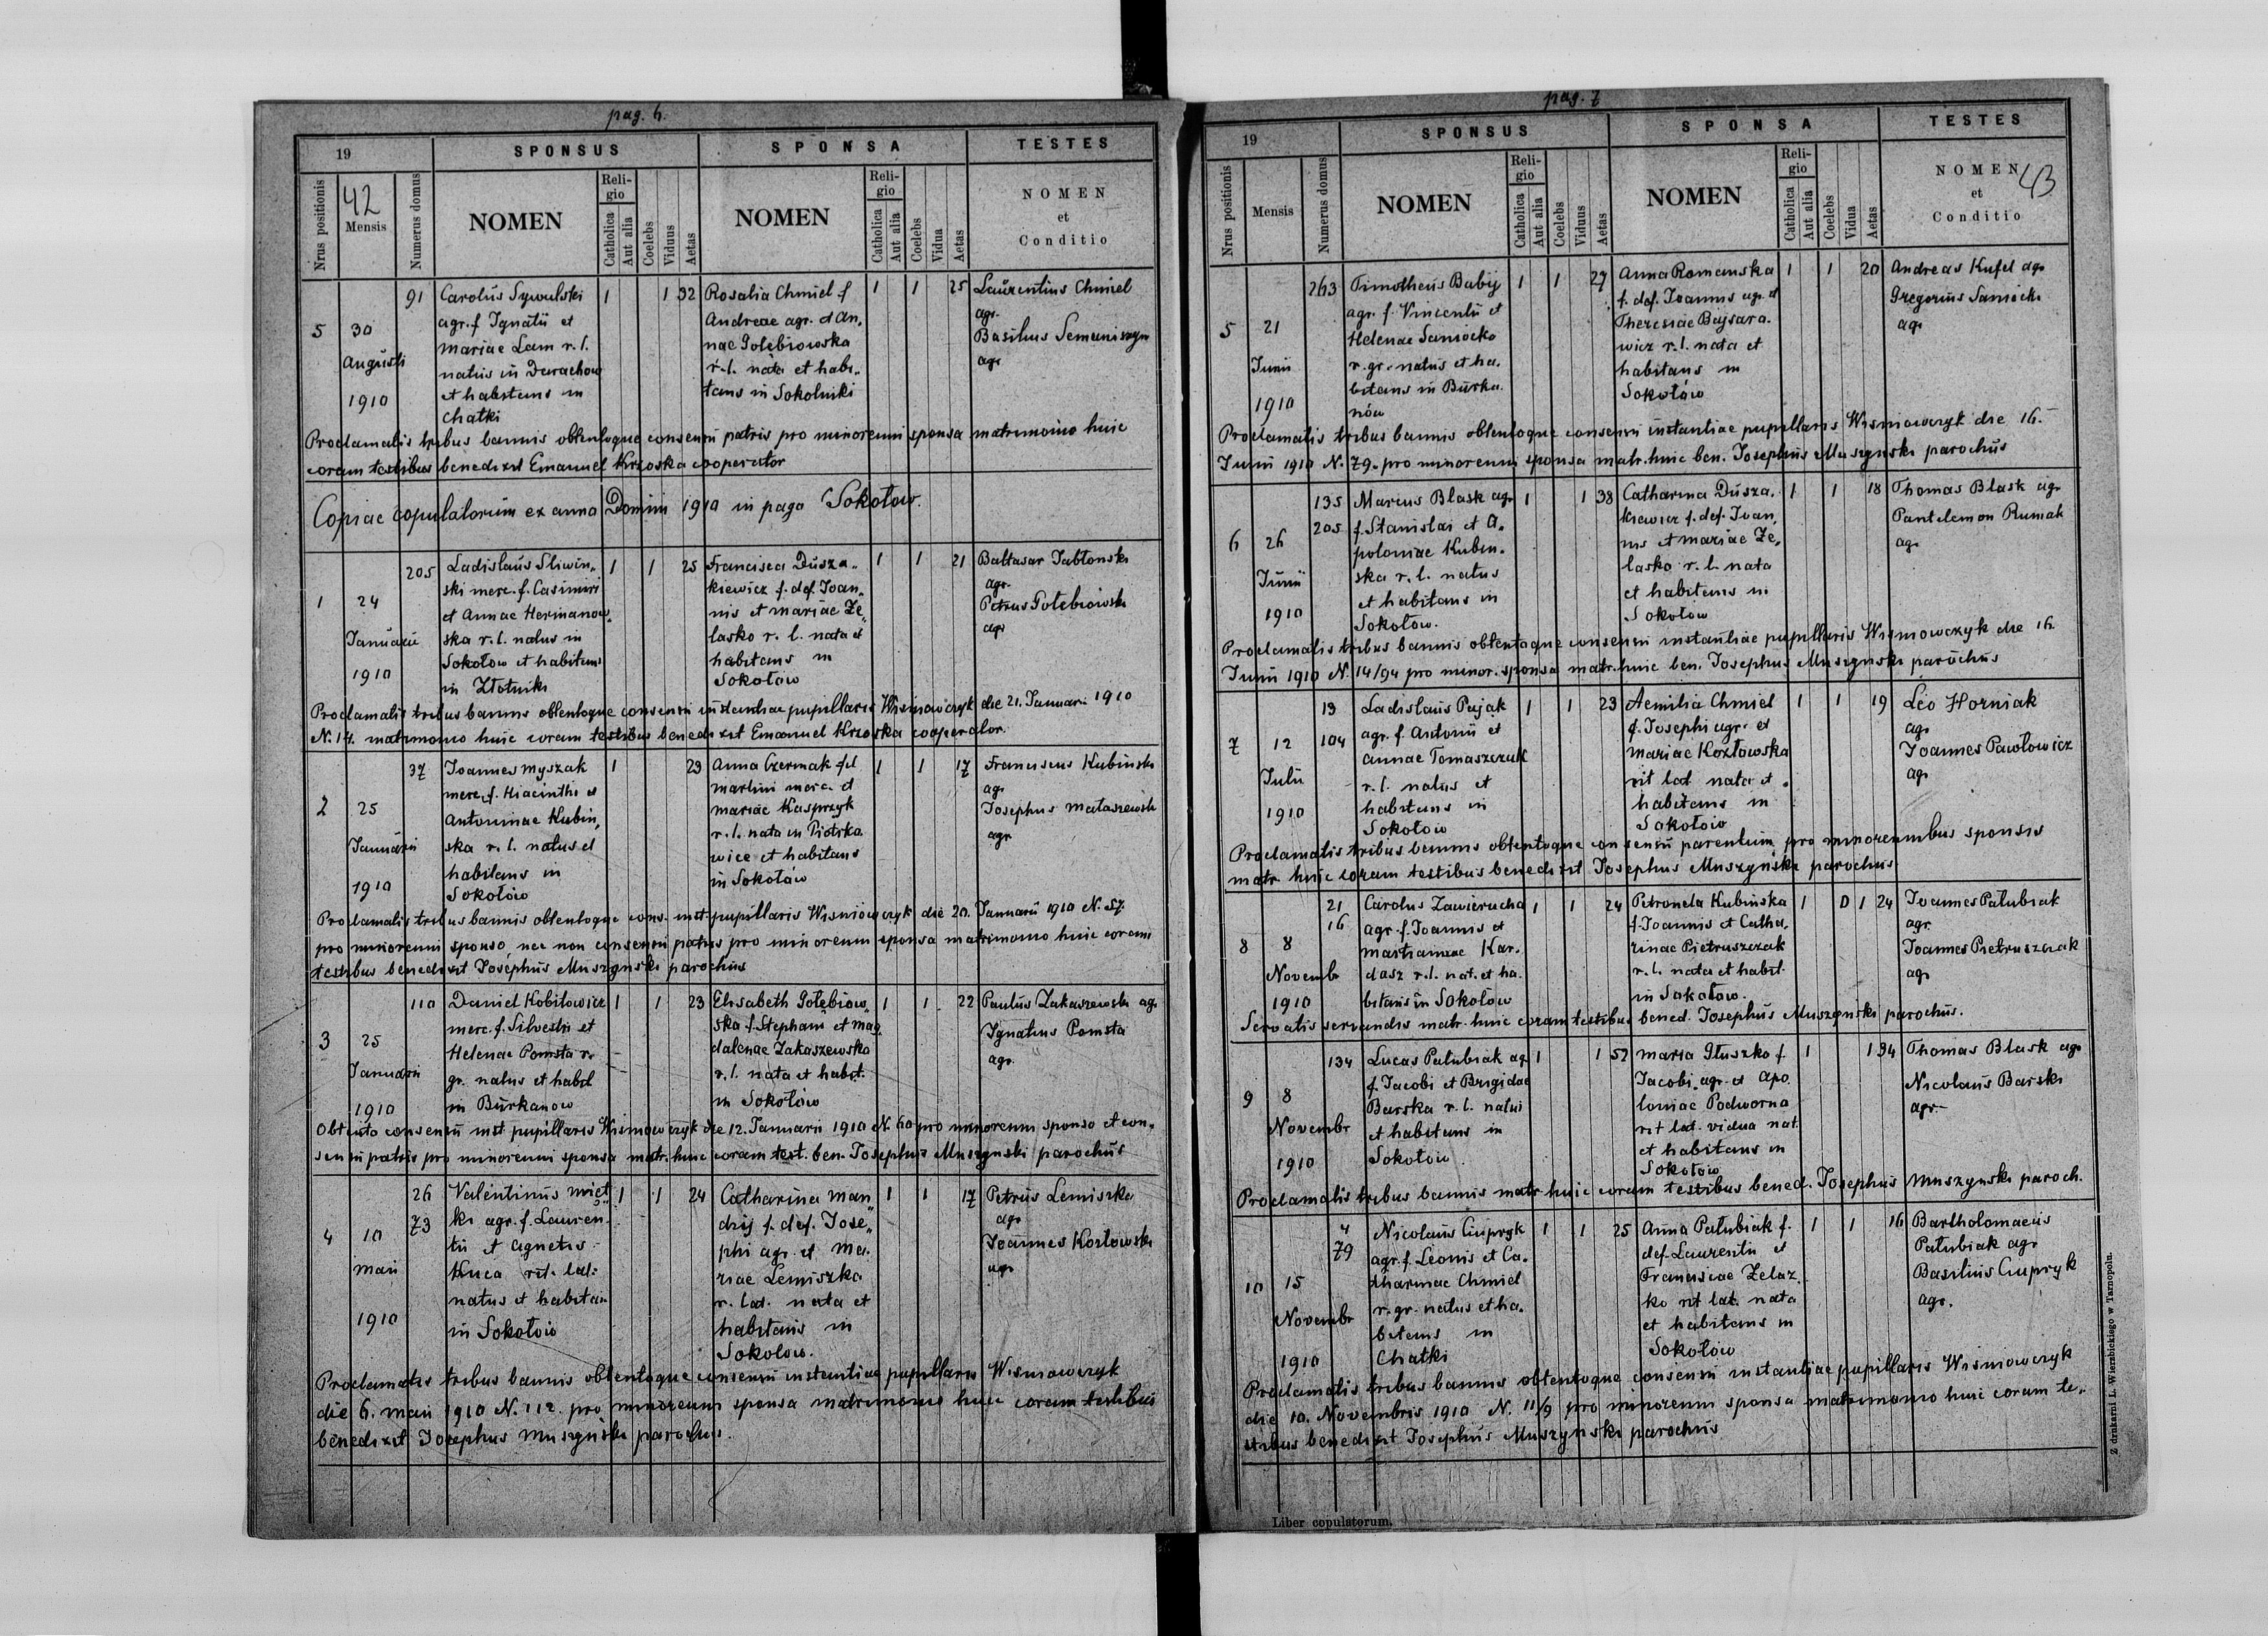 pag. 6.
19
SPONSUS
SPONSA
TESTES
Nrus positionis
42
Mensis
Numerus domus
NOMEN
Religio
Catholica
Aut alia
Coelebs
Viduus
Aetas
NOMEN
Religio
Catholica
Aut alia
Coelebs
Vidua
Aetas
NOMEN
et
Conditio
5
30
Augusti
1910
91
Carolus Sywulski
agr. f. Ignatii et
Mariae Lam r. l.
natus in Darachow
et habitans in
Chatki
1
1
32
Rosalia Chmiel f.
Andreae agr. et An,
nae Gołębiowska
r. l. nata et habi-
tans in Sokolniki
1
1
25
Laurentius Chmiel
agr.
Basilius Semaniszyn
agr
Proclamatis tribus bannis obtentoque consensu patris pro minorenni sponsa matrimonio huic
coram testibus benedixit Emanuel Krzoska cooperator
Copiae copulatorum ex anno Domini 1910 in pago Sokołow.
1
24
Januarii
1910
205
Ladislaus Sliwin,,
ski merc. f. Casimiri
et Annae Hermanow,
ska r. l. natus in
Sokołow et habitans
in Złotniki
1
1
25
Francisca Dusza,,
kiewicz f. def. Joan,,
nis et Mariae Że,,
lasko r. l. nata et
habitans in
Sokołow
1
1
21
Baltasar Jabłonski
agr.
Petrus Gołebiowski
agr
Proclamatis tribus bannis obtentoque consensu instantiae pupillaris Wisniowczyk die 21. Januarii 1910
N. 14. matrimonio huic coram testibus benedixit Emanuel Krzoska cooperator.
2
25
Januarii
1910
37
Joannes Myszak
merc. f. Hiacinthi et
Antoninae Kubin,
ska r. l. natus et
habitans in
Sokołow
1
23
Anna Czermak fil
Martini merc. et
Mariae Kasprzyk
r. l. nata in Piotrko
wice et habitans
in Sokołów
1
1
17
Franciscus Kubinski
agr
Josephus Mataszewski
agr.
Proclamatis tribus bannis obtentoque cons. inst. pupillaris Wisniowczyk die 20. Januarii 1910 N. 57
pro minorenni sponso, nec non consensu patris pro minorenni sponsa matrimonio huic coram
testibus benedixit Josephus Muszynski parochus
3
25
Januarii
1910
110
Daniel Kobitowicz
merc. f. Silvestri et
Helenae Pomsta r.
gr. natus et habit
in Burkanow
1
1
23
Elisabeth Gołębiow,,
ska f. Stephani et Mag
dalenae Zakaszewska
r. l. nata et habit.
in Sokołów
1
1
22
Paulus Zakaszewski agr
Ignatius Pomsta
agr.
Obtento consensu inst pupillaris Wisniowczyk die 12. Januarii 1910 N. 60 pro minorenni sponso et con,,
sensu patris pro minorenni sponsa matr. huic coram test. ben. Josephus Muszynski parochus
4
10
Maii
1910
26
73
Valentinus Mięt,,
ki agr. f. Lauren,,
tii et Agnetis
Kuca rit. lat.
natus et habitan
in Sokołow
1
1
24
Catharina Man,,
dzij f. def. Jose,,
phi agr. et Ma,
riae Lemiszka
r. lat. nata et
habitans in
Sokolow.
1
1
17
Petrus Lemiszka
agr
Joannes Kozłowski
agr
Proclamatis tribus bannis obtentoque consensu instantiae pupillaris Wisniowczyk
die 6. Maii 1910 N. 112. pro minorenni sponsa matrimonio huic coram testibus
benedixit Josephus Muszynski parochus.
pag. 7
19
SPONSUS
SPONSA
TESTES
Nrus positionis
Mensis
Numerus domus
NOMEN
Religio
Catholica
Aut alia
Coelebs
Viduus
Aetas
NOMEN
Religio
Catholica
Aut alia
Coelebs
Vidua
Aetas
NOMEN
et
Conditio
43
5
21
Junii
1910
263
Timotheus Babij
agr. f. Vincentii et
Helenae Saniocko
r. gr. natus et ha,
bitans in Burka,
nów
1
1
27
Anna Romanska
f. def. Joannis agr. et
Theresiae Bajsara,
wicz r. l. nata et
habitans in
Sokołów
1
1
20
Andreas Kufel agr
Gregorius Saniocki
agr
Proclamatis tribus bannis obtentoque consensu instantiae pupillaris Wisniowczyk die 16.
Junii 1910 N. 79. pro minorenni sponsa matr. huic ben. Josephus Muszynski parochus
6
26
Junii
1910
135
205
Marcus Blask agr
f. Stanislai et A,
poloniae Kubin,
ska r. l. natus
et habitans in
Sokołow.
1
1
38
Catharina Dusza,
kiewicz f. def. Joan,
nis et Mariae Że,
lasko r. l. nata
et habitans in
Sokołow
1
1
18
Thomas Blask agr
Pantelemon Rumak
agr
Proclamatis tribus bannis obtentoque consensu instantiae pupillaris Wisniowczyk die 16.
Junii 1910 N. 14/94 pro minor. sponsa matr. huic ben. Josephus Muszynski parochus
7
12
Julii
1910
13
104
Ladislaus Pająk
agr. f. Antonii et
Annae Tomaszczuk
r. l. natus et
habitans in
Sokołow
1
1
23
Aemilia Chmiel
f. Josephi agr. et
Mariae Kozłowska
rit lat nata et
habitans in
Sokołow
1
1
19
Leo Horniak
agr
Joannes Pawłowicz
agr
Proclamatis tribus bannis obtentoque consensu parentum pro minorennibus sponsis
matr. huic coram testibus benedixit Josephus Muszyński parochus
8
8
Novembr
1910
21
16
Carolus Zawierucha
agr. f. Joannis et
Mariannae Kar,
dasz r. l. nat. et ha,
bitans in Sokołow
1
1
24
Petronela Kubinska
f. Joannis et Catha,
rinae Pietruszczak
r. l. nata et habit.
in Sokołow.
1
0
1
24
Joannes Pałubiak
agr.
Joannes Pietruszczak
agr
Servatis servandis matr. huic coram testibus bened. Josephus Muszynski parochus.
9
8
Novembr
1910
134
Lucas Pałubiak agr
f. Jacobi et Brigidae
Barska r. l. natus
et habitans in
Sokołow
1
1
52
Maria Głuszko f.
Jacobi agr. et Apo
loniae Podworna
rit lat. vidua nat.
et habitans in
Sokołow
1
1
34
Thomas Blask agr
Nicolaus Barski
agr.
Proclamatis tribus bannis matr. huic coram testibus bened. Josephus Muszynski paroch.
10
15
Novembr
1910
4
79
Nicolaus Ciupryk
agr. f. Leonis et Ca,
tharinae Chmiel
r. gr. natus et ha,
bitans in
Chatki
1
1
25
Anna Pałubiak f.
def. Laurentii et
Franciscae Żelaz,
ko rit lat. nata
et habitans in
Sokołów
1
1
16
Bartholomaeus
Pałubiak agr
Basilius Ciupryk
agr.
Proclamatis tribus bannis obtentoque consensu instantiae pupillaris Wisniowczyk
die 10. Novembris 1910 N. 11/9 pro minorenni sponsa matrimonio huic coram te,,
stibus benedixit Josephus Muszynski parochus
Liber copulatorum.
Z drukarni L. Wierzbickiego w Tarnopolu.